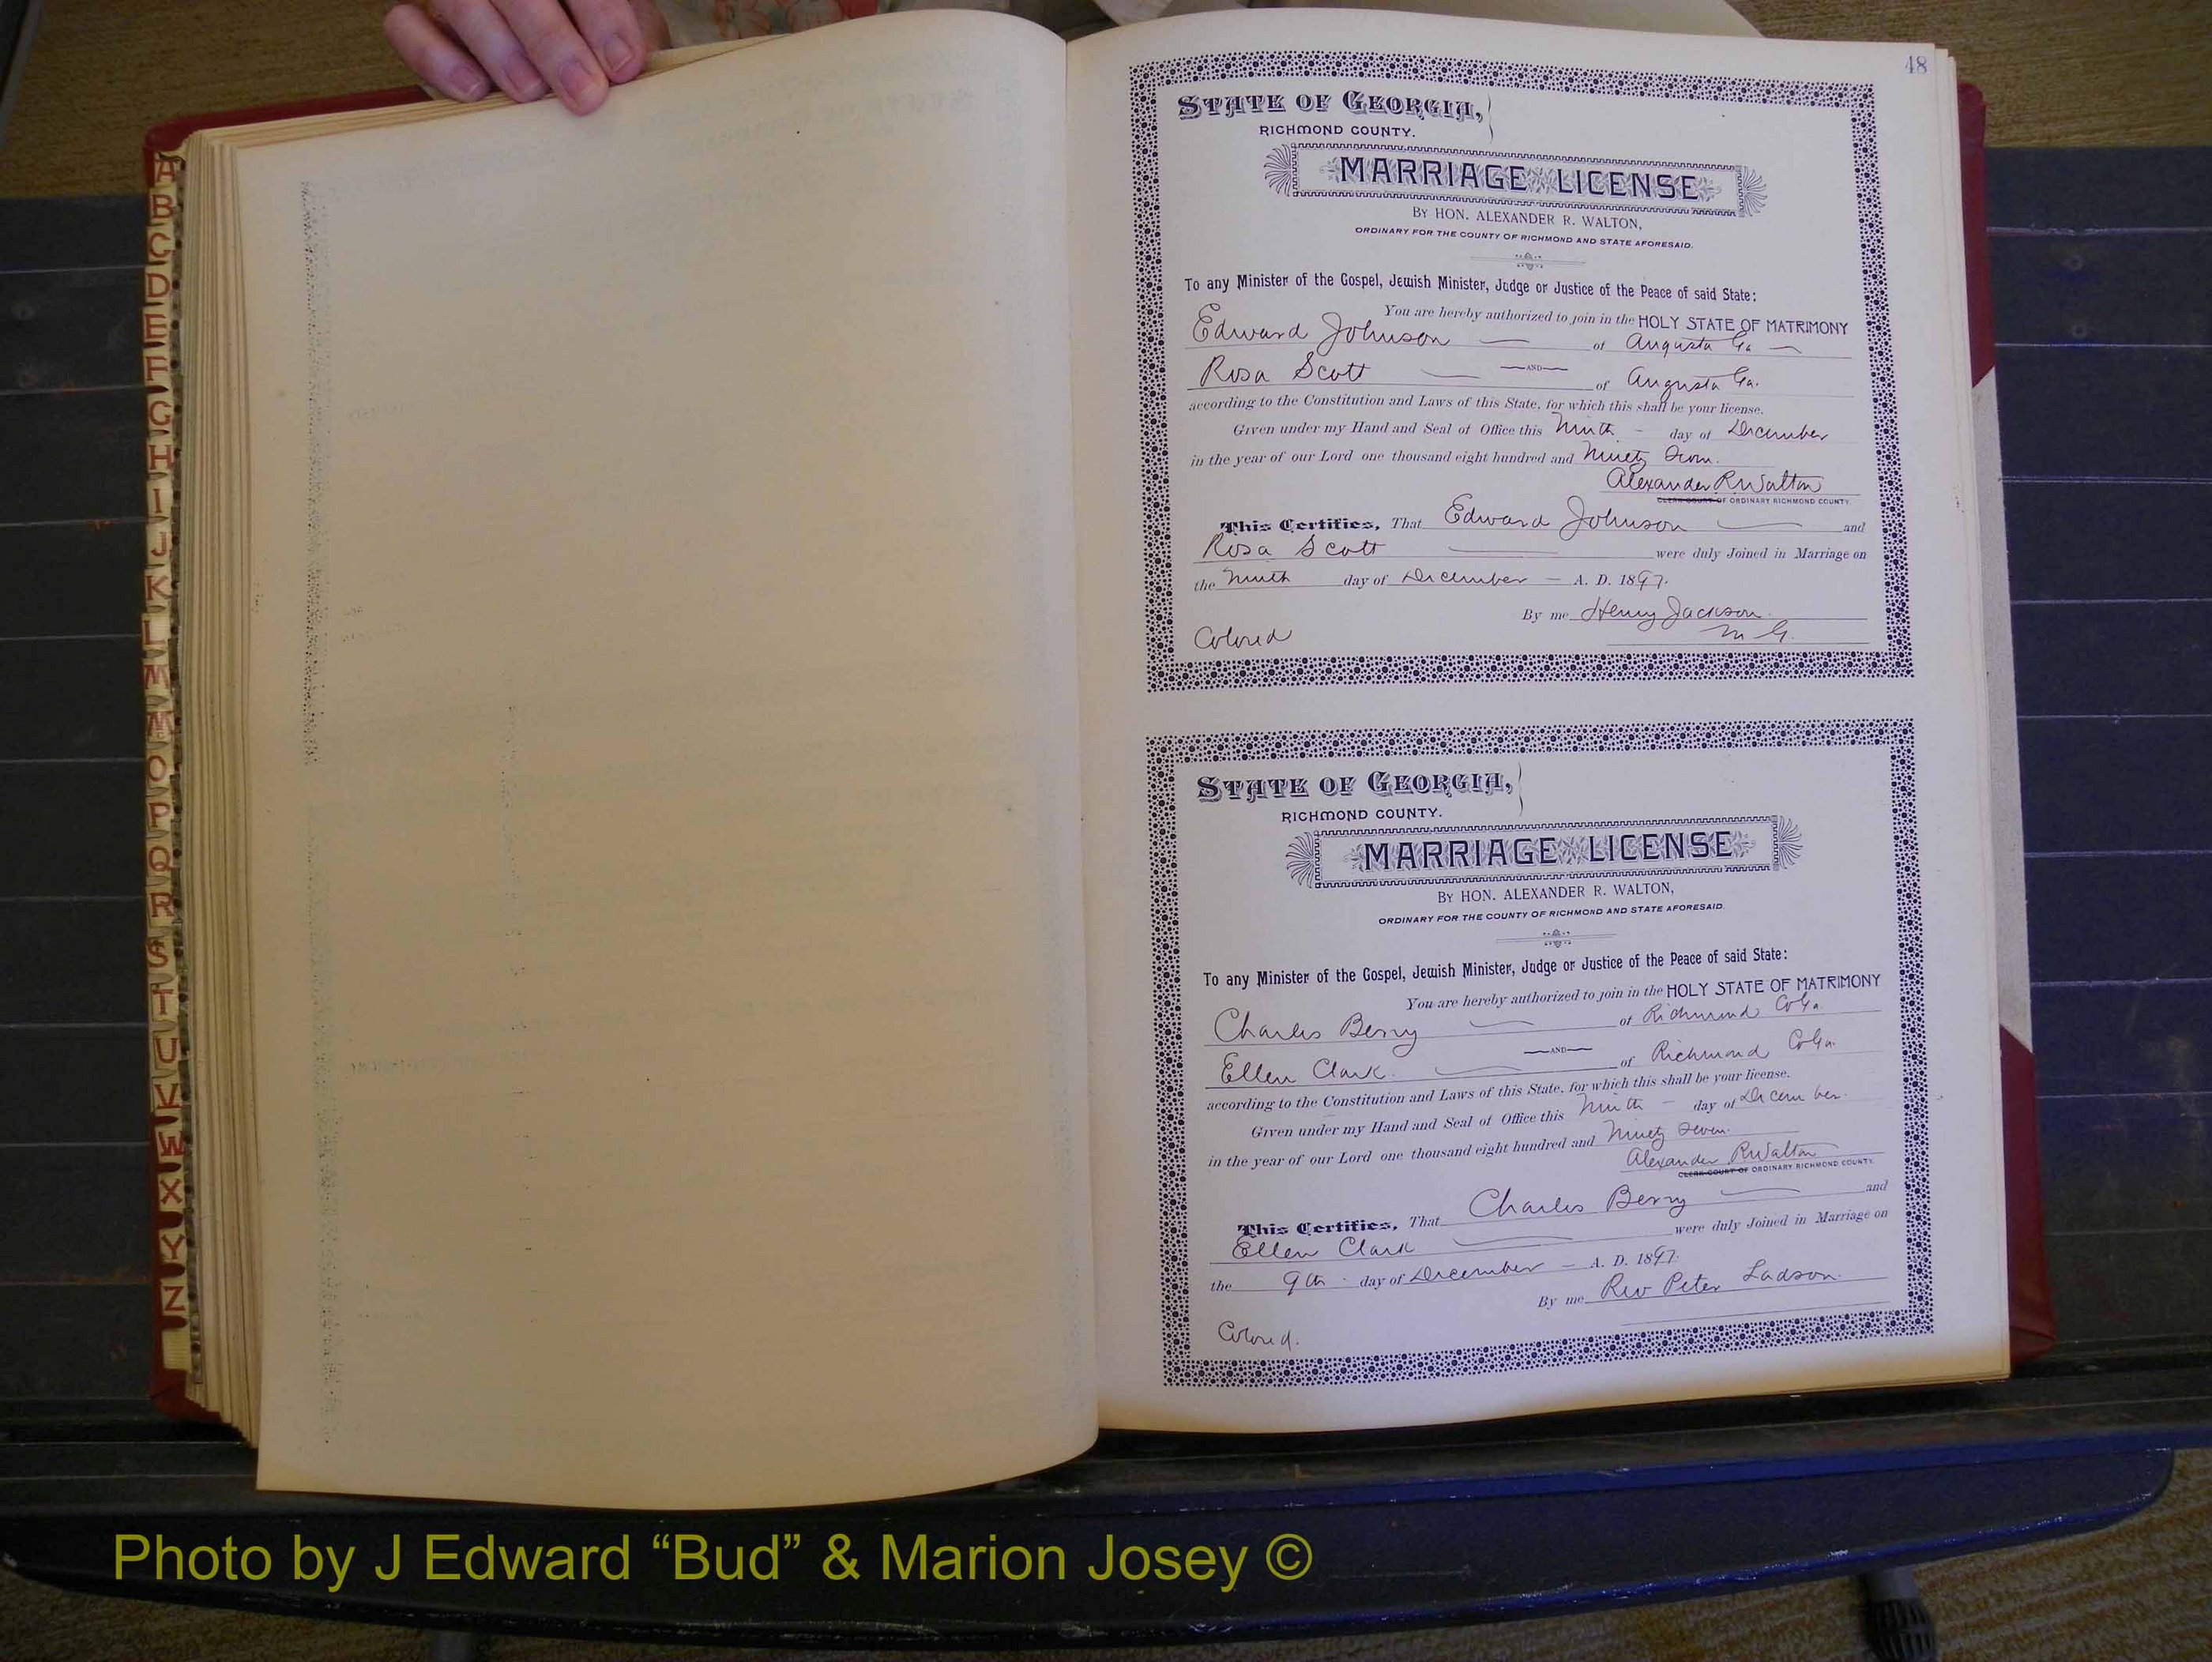 A
B
C
D
E
F
G
H
I
J
K
L
M
Mc
O
P
Q
R
S
T
U
V
W
X
Y
Z
48
STATE OF GEORGIA,
RICHMOND COUNTY.
MARRIAGE LICENSE
BY HON. ALEXANDER R. WALTON,
ORDINARY FOR THE COUNTY OF RICHMOND AND STATE AFORESAID.
To any Minister of the Gospel, Jewish Minister, Judge or Justice of the Peace of said State:
You are hereby authorized to join in the HOLY STATE OF MATRIMONY
Edward Johnson — of Augusta Ga —
—AND—
Rosa Scott — of Augusta Ga.
according to the Constitution and Laws of this State, for which this shall be your license.
Given under my Hand and Seal of Office this Ninth – day of December
in the year of our Lord one thousand eight hundred and Ninety Seven.
Alexander R Walton
CLERK COURT OF ORDINARY RICHMOND COUNTY.
This Certifies, That Edward Johnson — and
Rosa Scott — were duly Joined in Marriage on
the Ninth day of December — A. D. 1897.
By me Henry Jackson.
M G.
Colored
STATE OF GEORGIA,
RICHMOND COUNTY.
MARRIAGE LICENSE
BY HON. ALEXANDER R. WALTON,
ORDINARY FOR THE COUNTY OF RICHMOND AND STATE AFORESAID.
To any Minister of the Gospel, Jewish Minister, Judge or Justice of the Peace of said State:
You are hereby authorized to join in the HOLY STATE OF MATRIMONY
Charles Berry — of Richmond Co Ga.
—AND—
Ellen Clark. — of Richmond Co Ga.
according to the Constitution and Laws of this State, for which this shall be your license.
Given under my Hand and Seal of Office this Ninth – day of December.
in the year of our Lord one thousand eight hundred and Ninety Seven.
Alexander R Walton
CLERK COURT OF ORDINARY RICHMOND COUNTY.
This Certifies, That Charles Berry — and
Ellen Clark — were duly Joined in Marriage on
the 9th day of December — A. D. 1897.
By me Rev Peter Ladson.
Colored.
Photo by J Edward “Bud” & Marion Josey ©